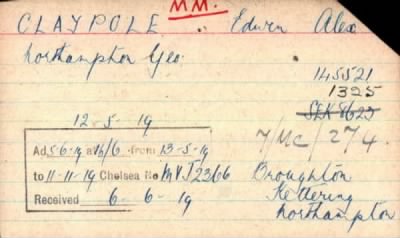 MM.
CLAYPOLE Edwin Alex
Northampton Yeo.
145521
1325
12-5-19
7/MC/274.
Ad 5-6-19 a 16/6 from 13-5-19
to 11-11-19 Chelsea No MVJ2366
Received 6-6-19
Broughton
Kettering
Northampton